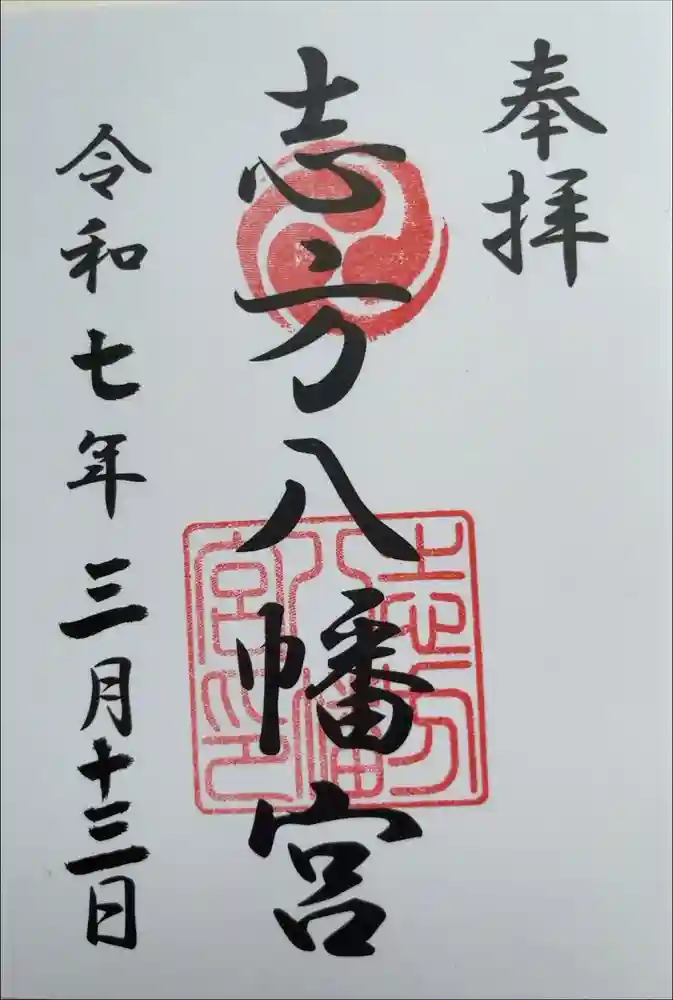 奉拝
志方八幡宮
志方八幡宮印
令和七年三月十三日